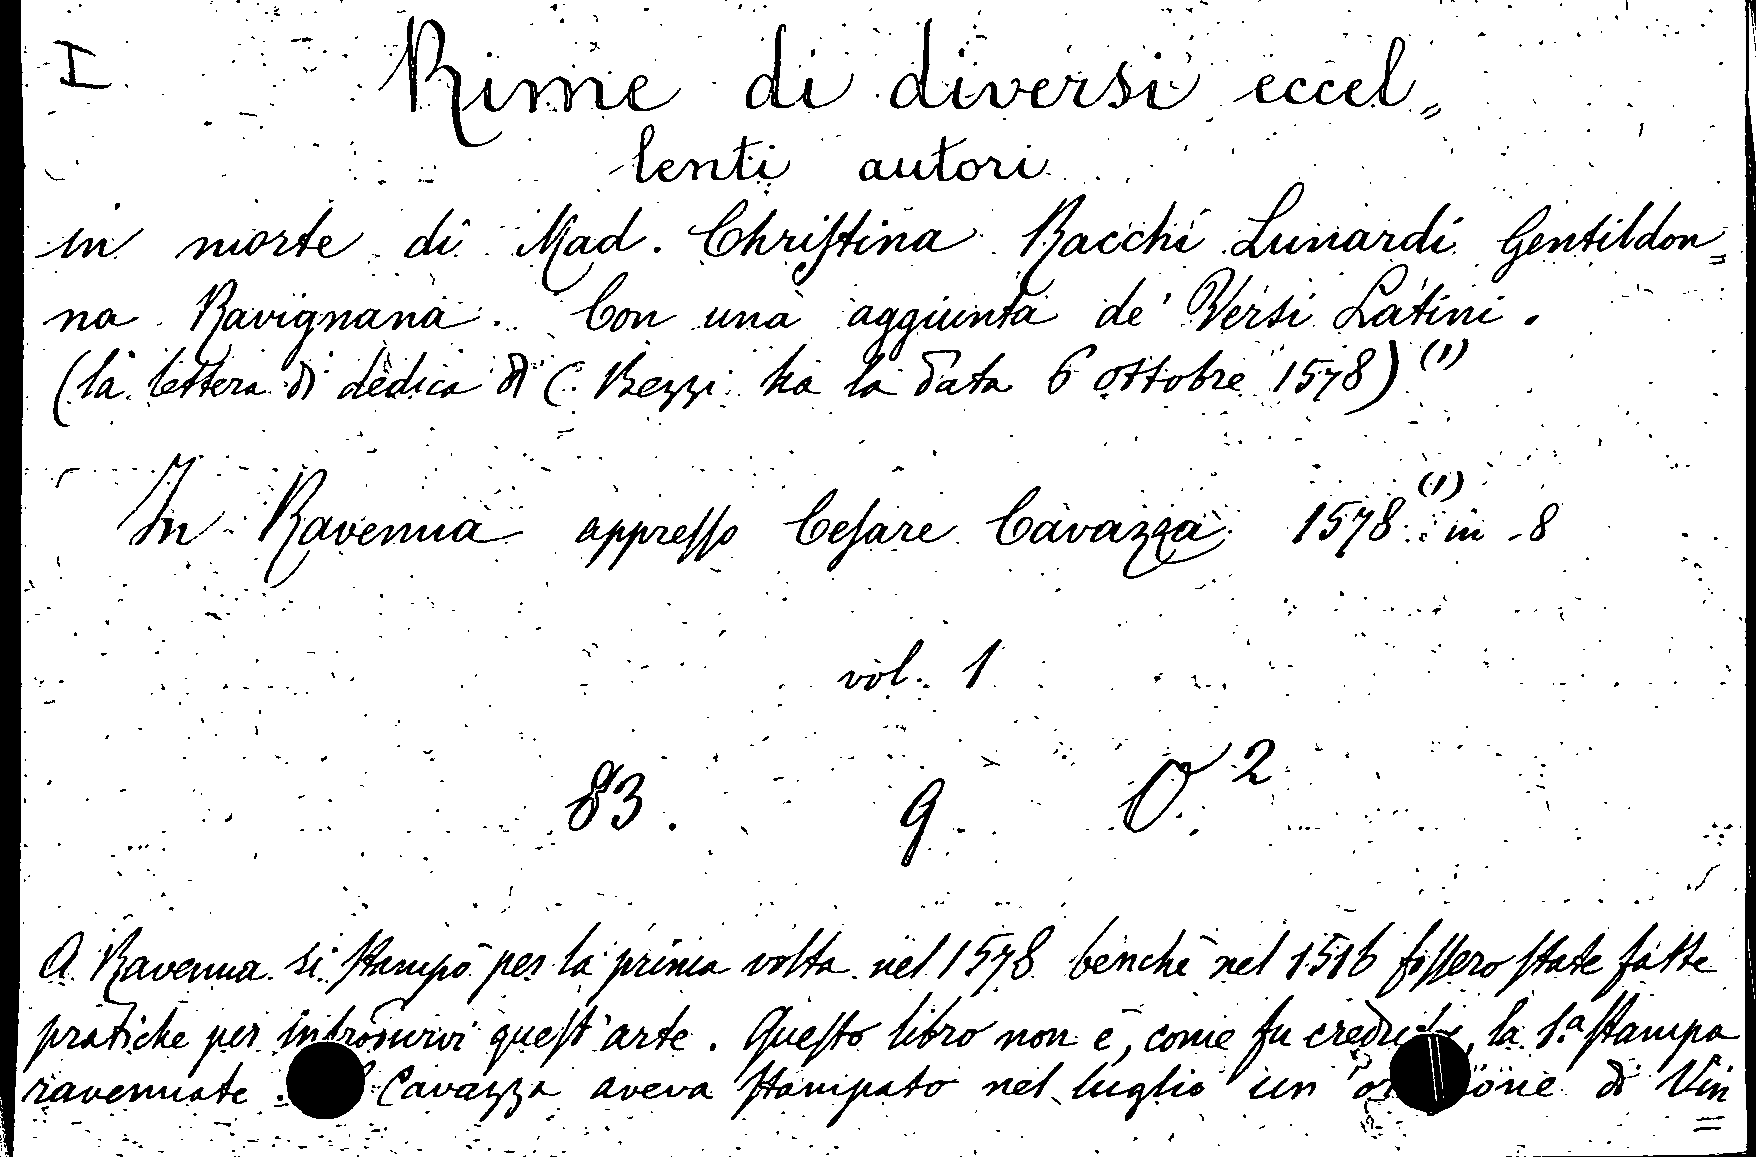 I Rime di diversi eccel„
lenti autori
in morte di Mad. Chriſtina Racchi Lunardi Gentildon„
na Ravignana. Con una aggiunta de' Versi Latini.
(la lettera di dedica di C. Bezzi ha la data 6 ottobre 1578) (1)
In Ravenna appreſſo Ceſare Cavazza 1578 (1) in -8
vol. 1
83. 9 O. 2
A Ravenna si ſtampò per la prima volta nel 1578 benchè nel 1516 foſſero ſtate fatte
pratiche per introdurvi queſt'arte. Queſto libro non è, come fu creduto, la 1.ª ſtampa
ravennate. Cavazza aveva ſtampato nel luglio un di Vin
=